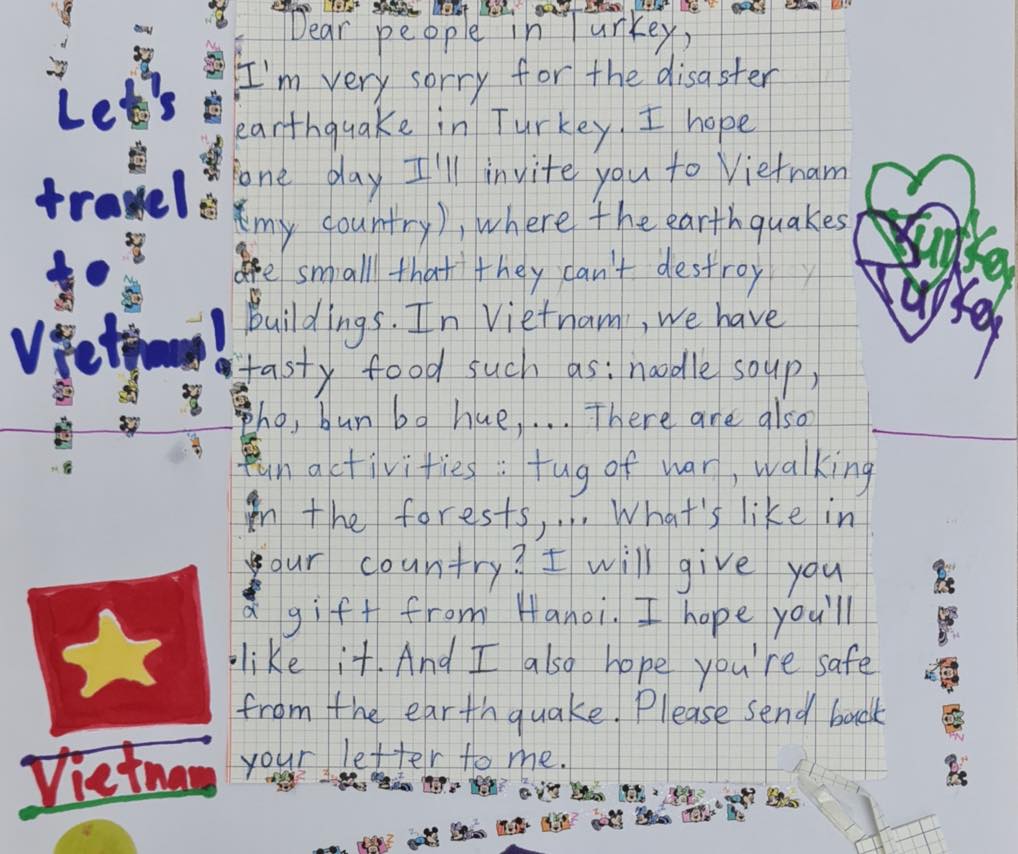 Dear people in Turkey,
I'm very sorry for the disaster
earthquake in Turkey. I hope
one day I'll invite you to Vietnam
(my country), where the earthquakes
are small that they can't destroy
buildings. In Vietnam, we have
tasty food such as: noodle soup,
pho, bun bo hue,... There are also
fun activities: tug of war, walking
in the forests,... What's like in
your country? I will give you
a gift from Hanoi. I hope you'll
like it. And I also hope you're safe
from the earthquake. Please send back
your letter to me.
Let's
travel
to
Vietnam!
Vietnam